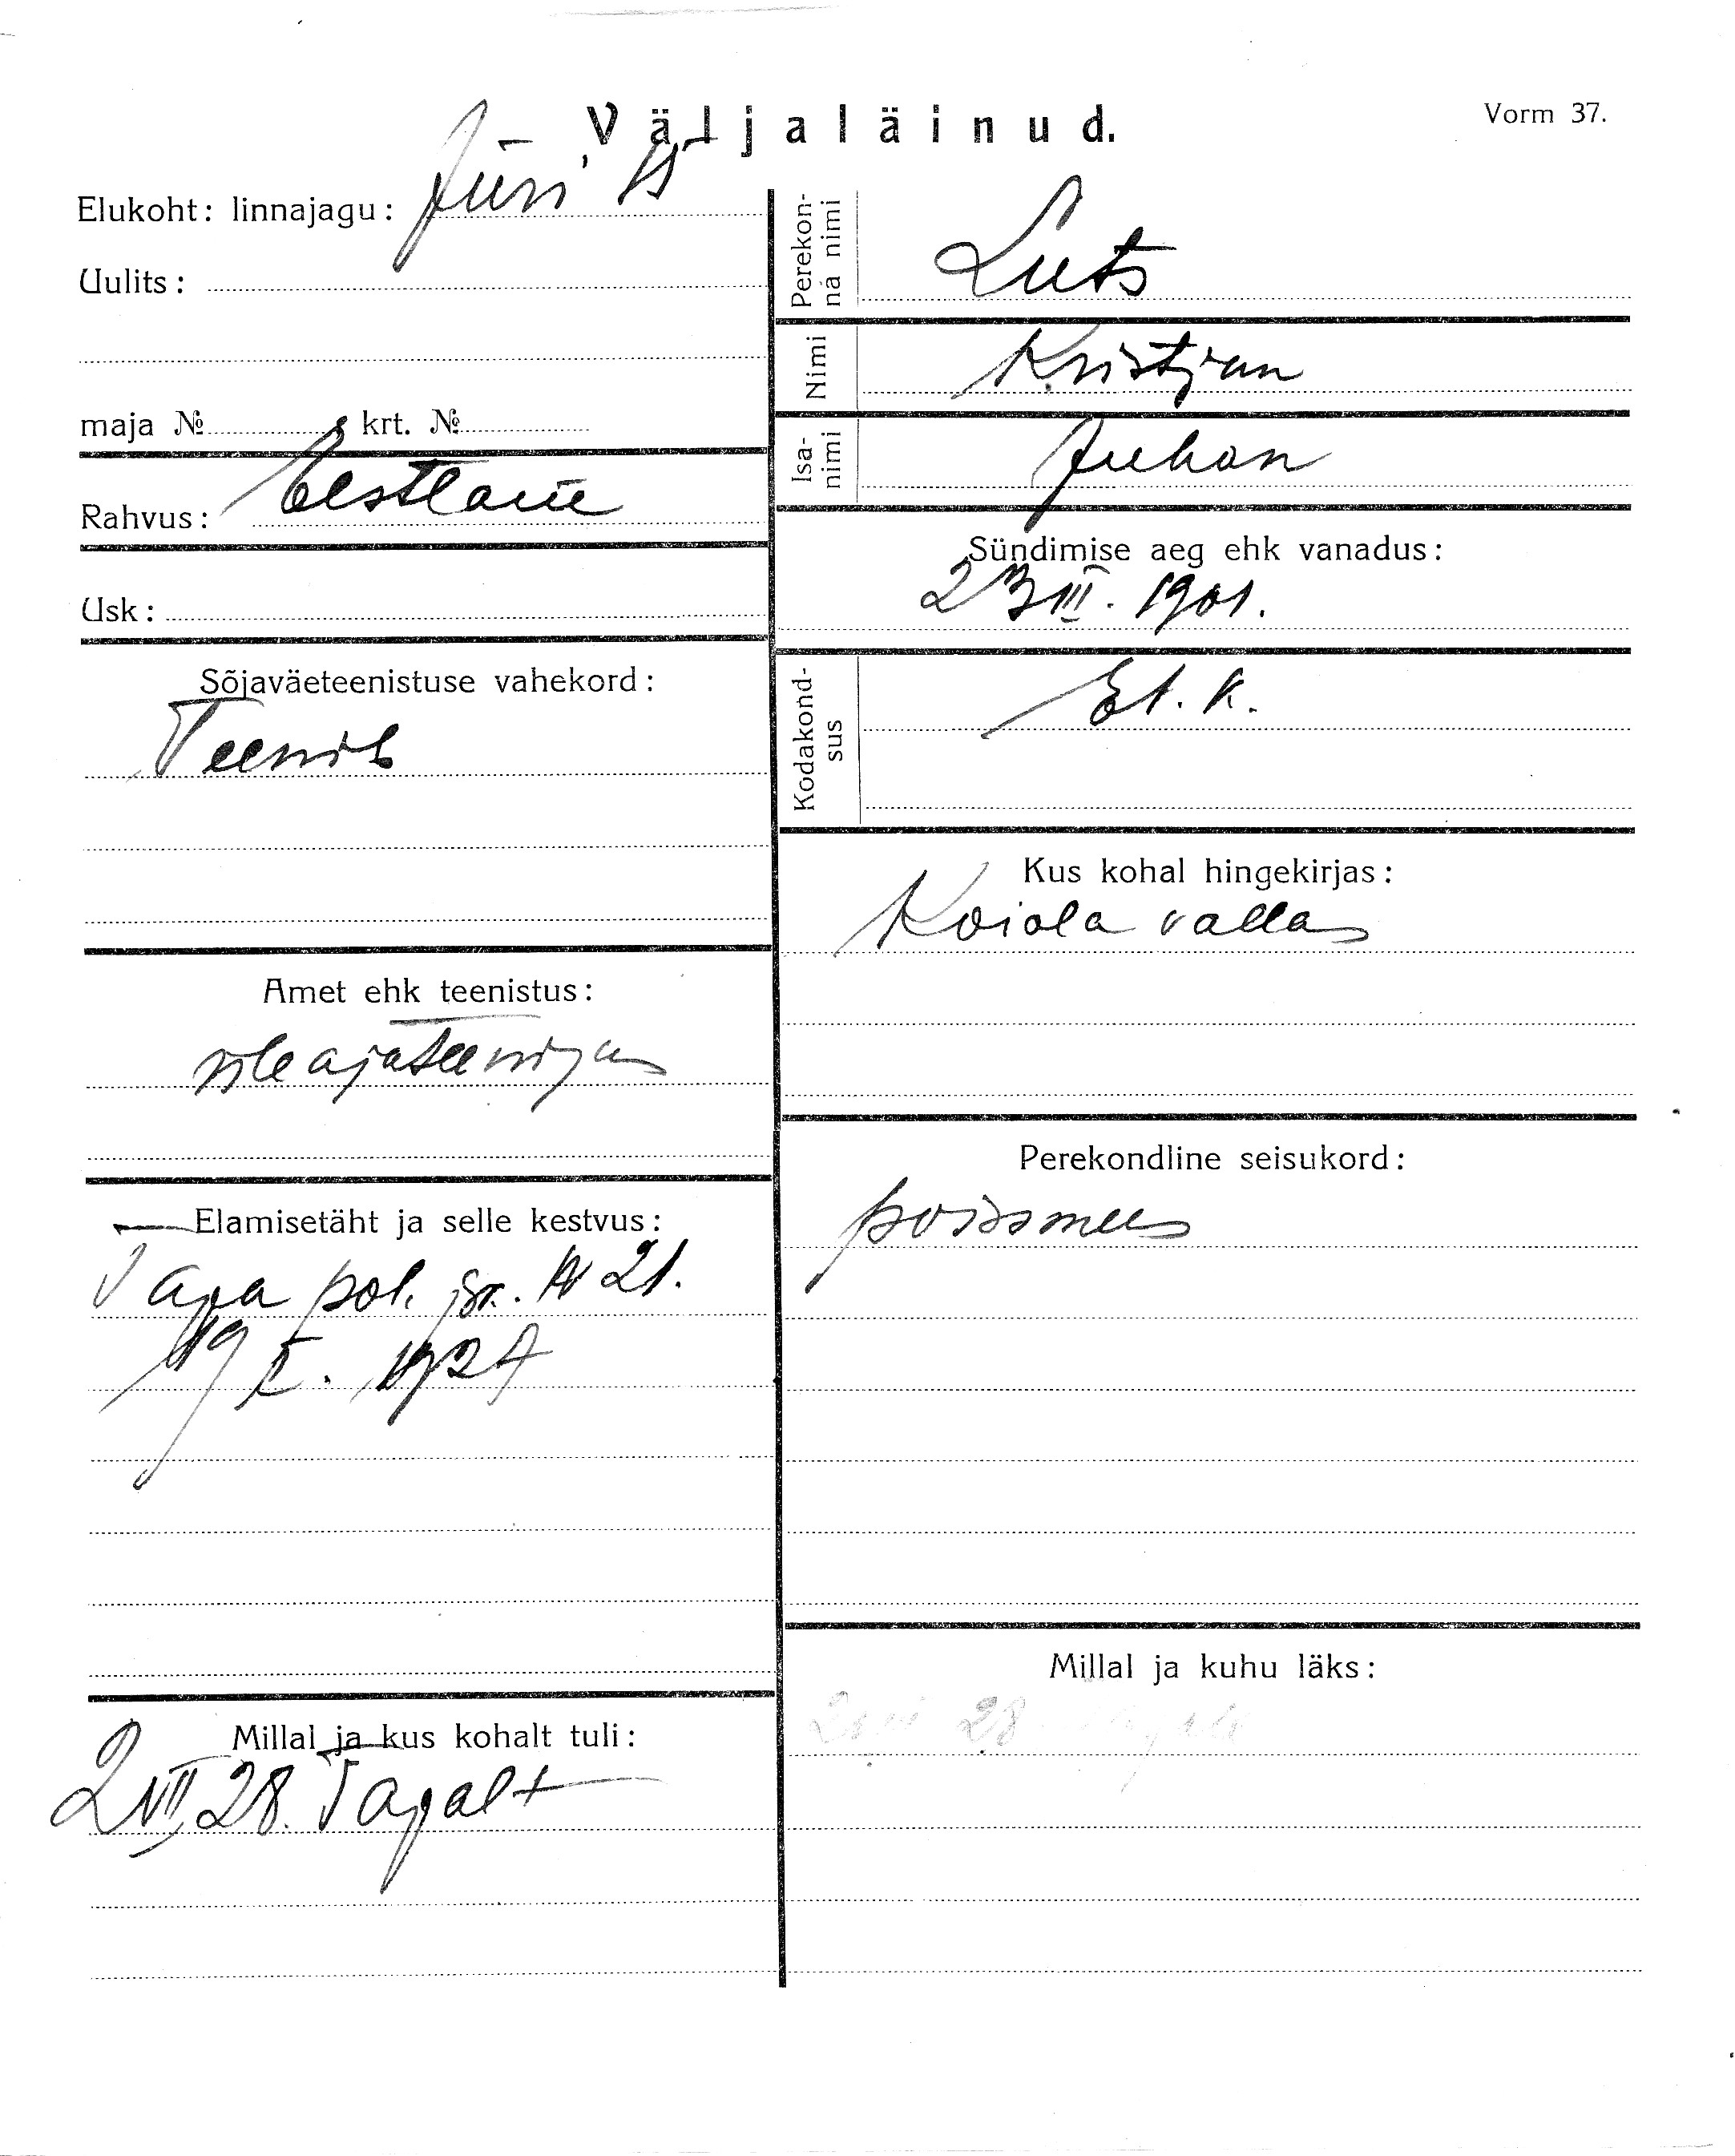 Väljaläinud.
Vorm 37.
Elukoht: linnajagu: Jüri
Uulits:
maja № krt. №
Rahvus: Eestlane
Usk:
Sõjaväeteenistuse vahekord:
Teenib
Amet ehk teenistus:
üleajateenija
Elamisetäht ja selle kestvus:
Tapa pol. jsk. № 21.
19 I. 1927
Millal ja kus kohalt tuli:
2 VII 28. Tapalt
Perekonna nimi
Luts
Nimi
Kristjan
Isanimi
Juhan
Sündimise aeg ehk vanadus:
23 III. 1901.
Kodakondsus
Et. K.
Kus kohal hingekirjas:
Koiola vallas
Perekondline seisukord:
poissmees
Millal ja kuhu läks:
28